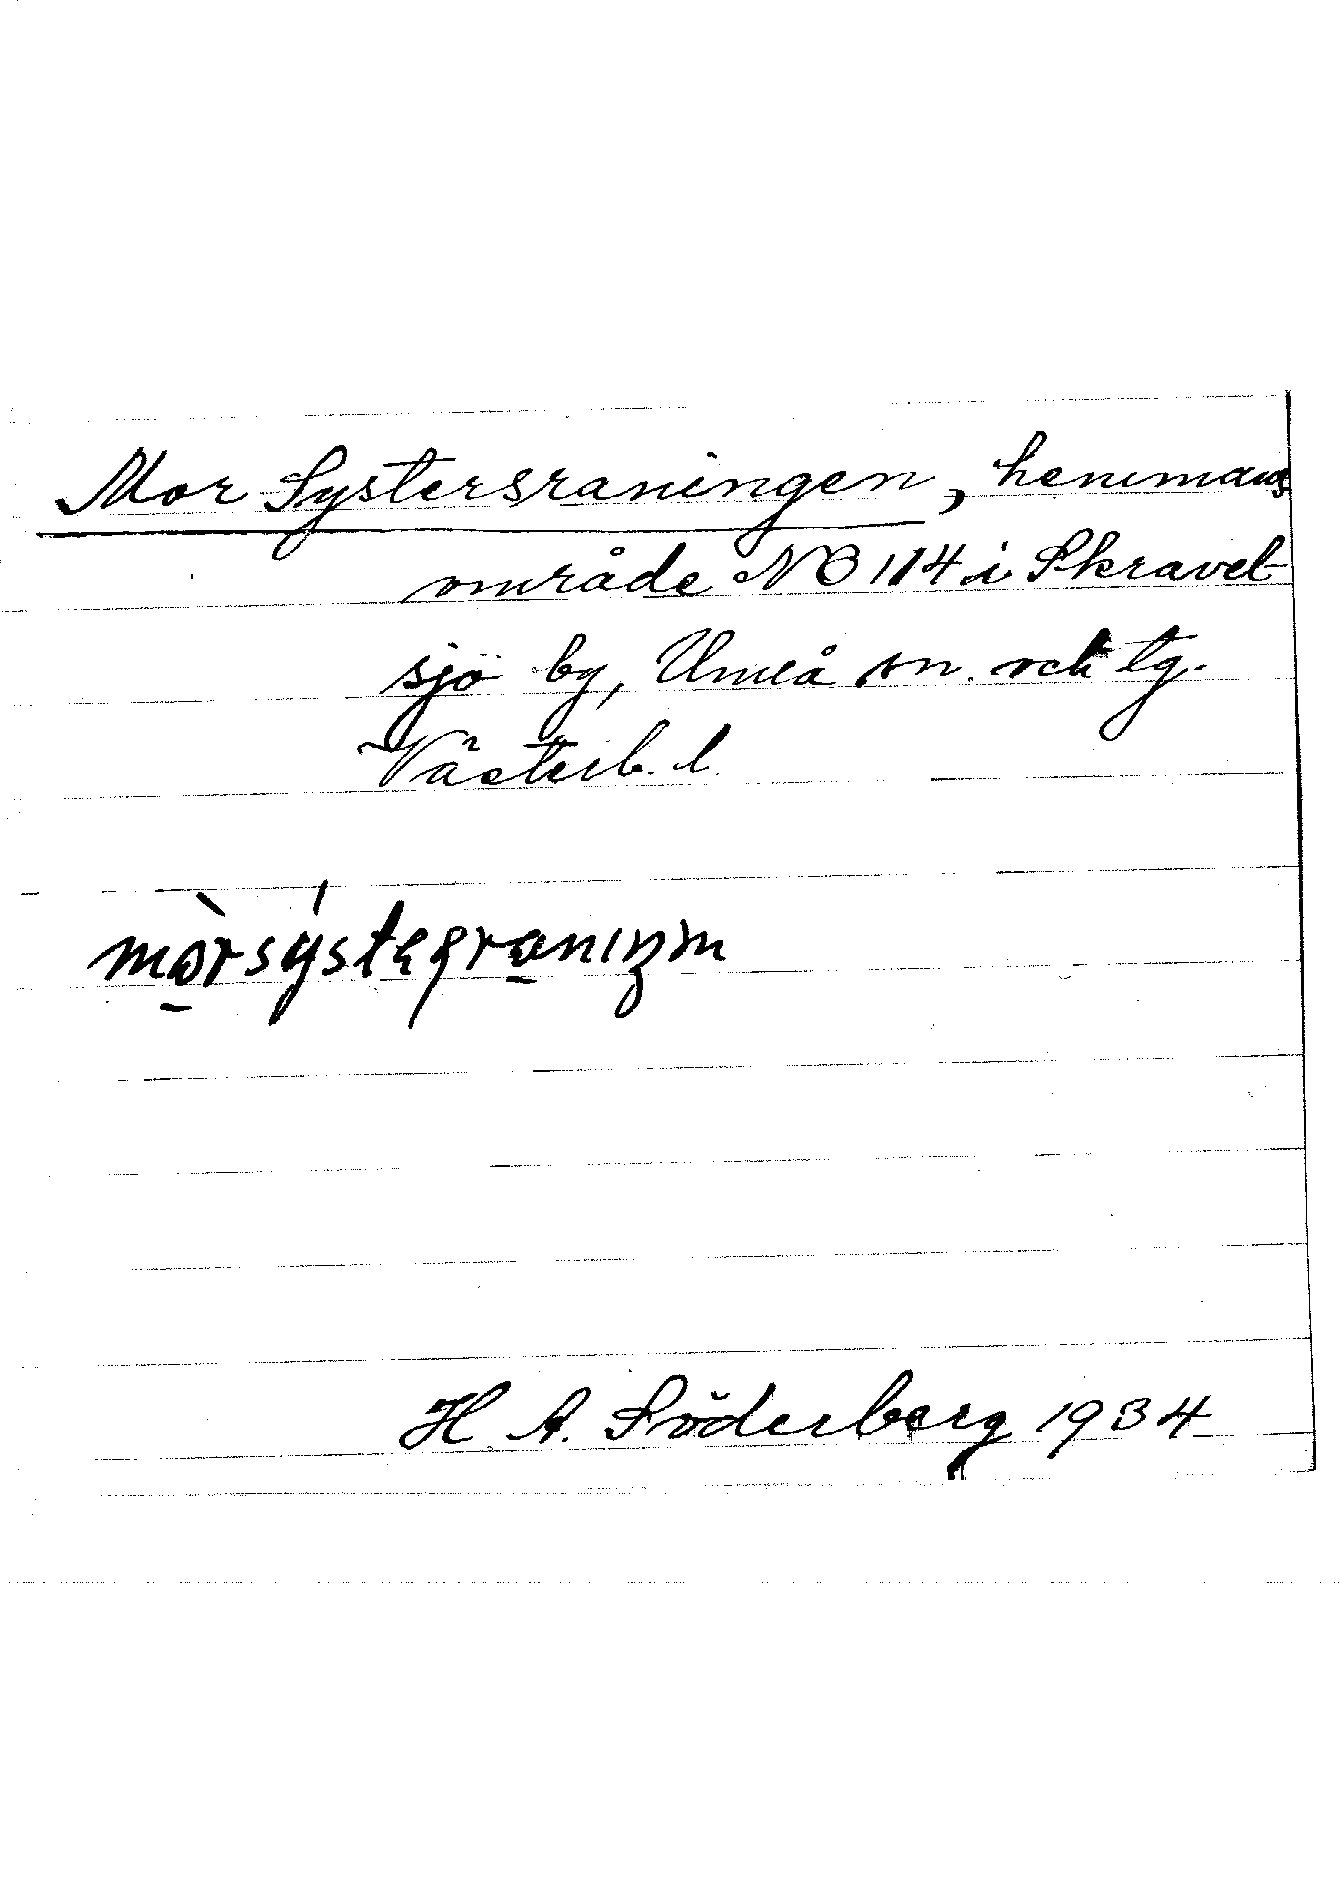 Mor Systersraningen, hemmans
område NB 114 i Skravel-
sjö by, Umeå sn. och tg.
Västerb. l.
H. A. Söderberg 1934